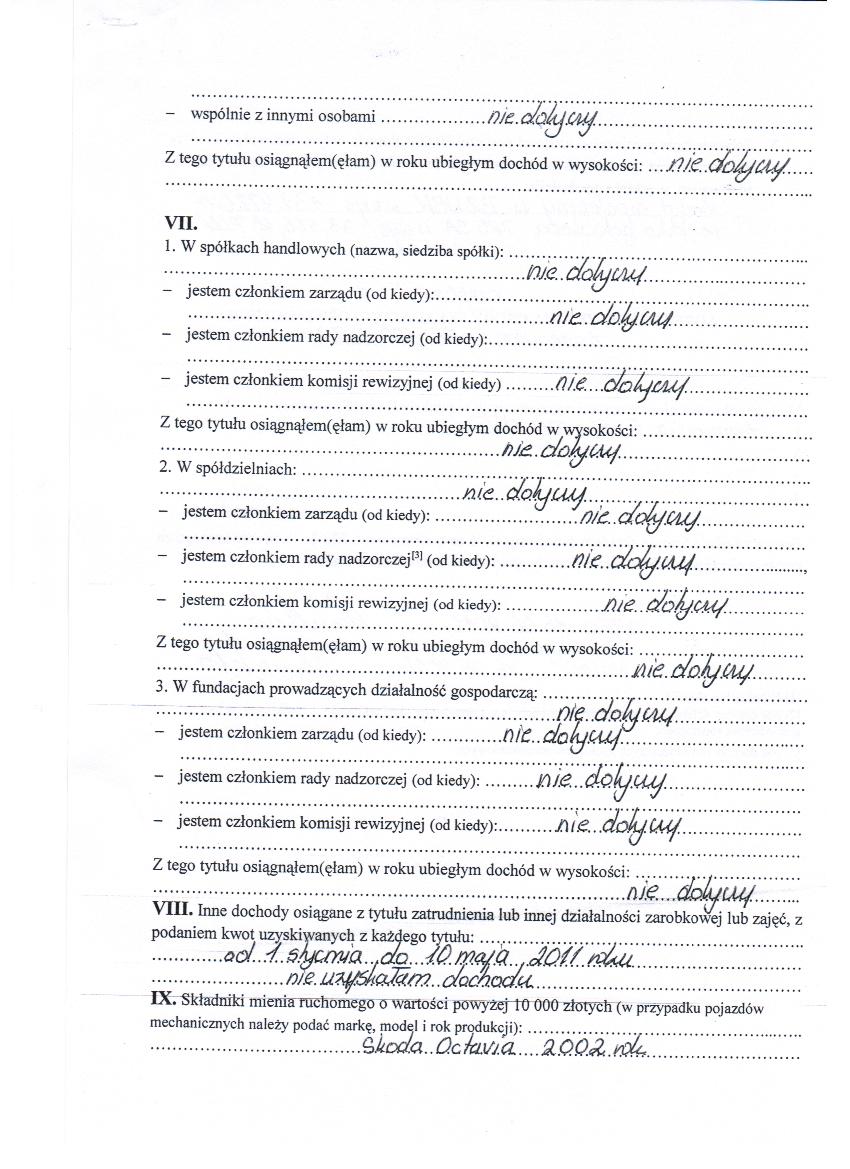 – wspólnie z innymi osobami .................... nie dotyczy
Z tego tytułu osiągnąłem(ęłam) w roku ubiegłym dochód w wysokości: .... nie dotyczy
VII.
1. W spółkach handlowych (nazwa, siedziba spółki): ....................
nie dotyczy
– jestem członkiem zarządu (od kiedy):....................
nie dotyczy
– jestem członkiem rady nadzorczej (od kiedy):....................
– jestem członkiem komisji rewizyjnej (od kiedy) .......... nie dotyczy
Z tego tytułu osiągnąłem(ęłam) w roku ubiegłym dochód w wysokości: ....................
nie dotyczy
2. W spółdzielniach: ....................
nie dotyczy
– jestem członkiem zarządu (od kiedy): .................... nie dotyczy
– jestem członkiem rady nadzorczej[3] (od kiedy): .............. nie dotyczy....................,
– jestem członkiem komisji rewizyjnej (od kiedy): .................... nie dotyczy
Z tego tytułu osiągnąłem(ęłam) w roku ubiegłym dochód w wysokości: ....................
nie dotyczy
3. W fundacjach prowadzących działalność gospodarczą: ....................
nie dotyczy
– jestem członkiem zarządu (od kiedy): .............. nie dotyczy
– jestem członkiem rady nadzorczej (od kiedy): .......... nie dotyczy
– jestem członkiem komisji rewizyjnej (od kiedy):............ nie dotyczy
Z tego tytułu osiągnąłem(ęłam) w roku ubiegłym dochód w wysokości: ....................
nie dotyczy
VIII. Inne dochody osiągane z tytułu zatrudnienia lub innej działalności zarobkowej lub zajęć, z
podaniem kwot uzyskiwanych z każdego tytułu: ....................
od 1 stycznia do 10 maja 2011 roku
nie uzyskałam dochodu
IX. Składniki mienia ruchomego o wartości powyżej 10 000 złotych (w przypadku pojazdów
mechanicznych należy podać markę, model i rok produkcji): ....................
Skoda Octavia 2002 rok